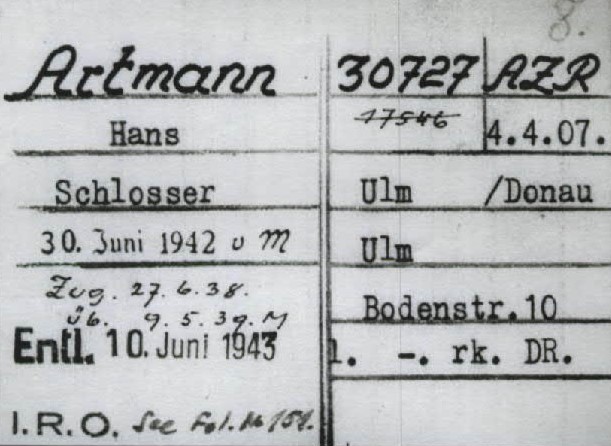 Artmann 30727 AZR
Hans 17546 4.4.07.
Schlosser Ulm /Donau
30. Juni 1942 v M Ulm
Zug. 27.6.38.
üb. 9.5.39. M Bodenstr.10
Entl. 10. Juni 1943 l. -. rk. DR.
I.R.O. See Fol. No 151.